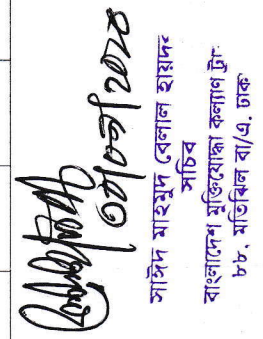 সাঈদ মাহমুদ বেলাল হায়দর
সচিব
বাংলাদেশ মুক্তিযোদ্ধা কল্যাণ ট্রা
৮৮, মতিঝিল বা/এ, ঢাক